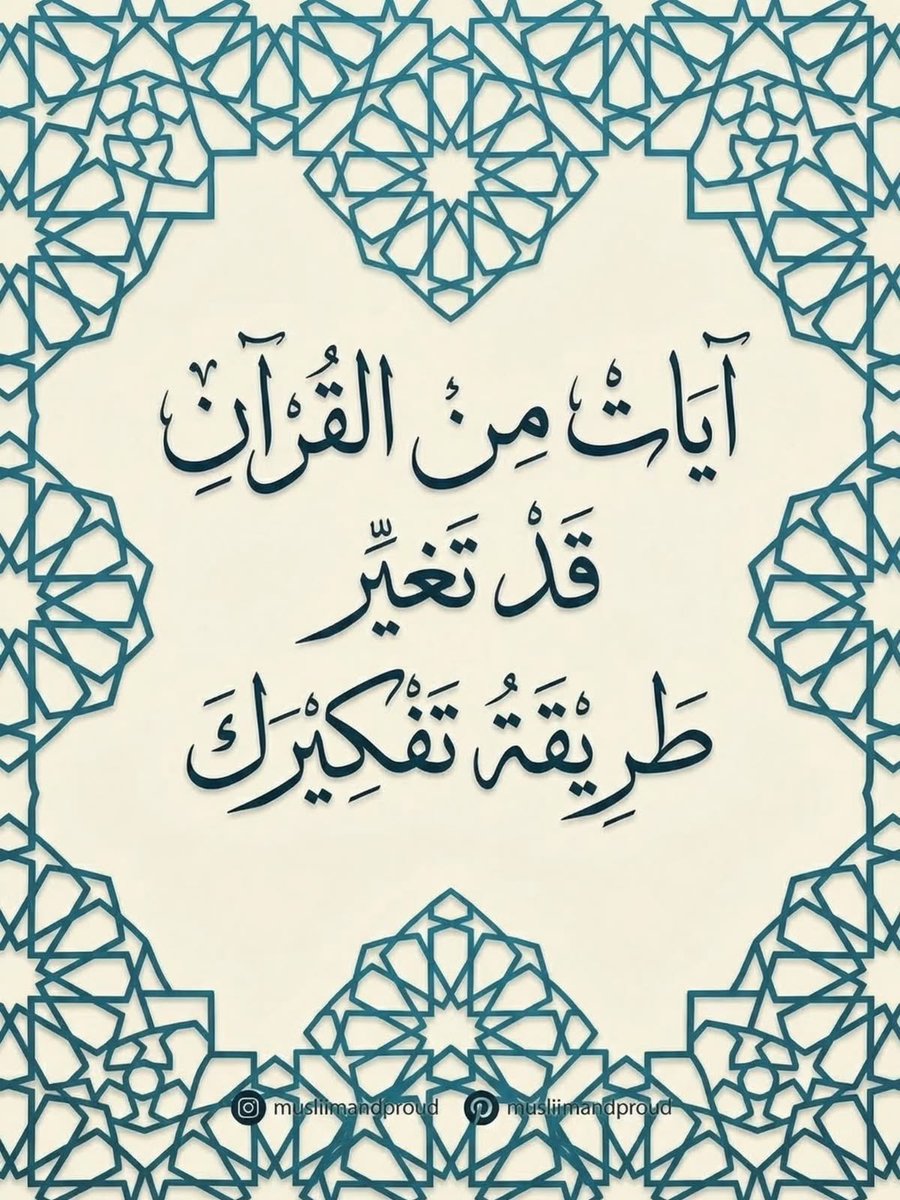 آيَاتْ مِنْ القُرْآنِ
قَدْ تَغيِّر
طَرِيْقَةُ تَفْكِيْرَكَ
musliimandproud musliimandproud